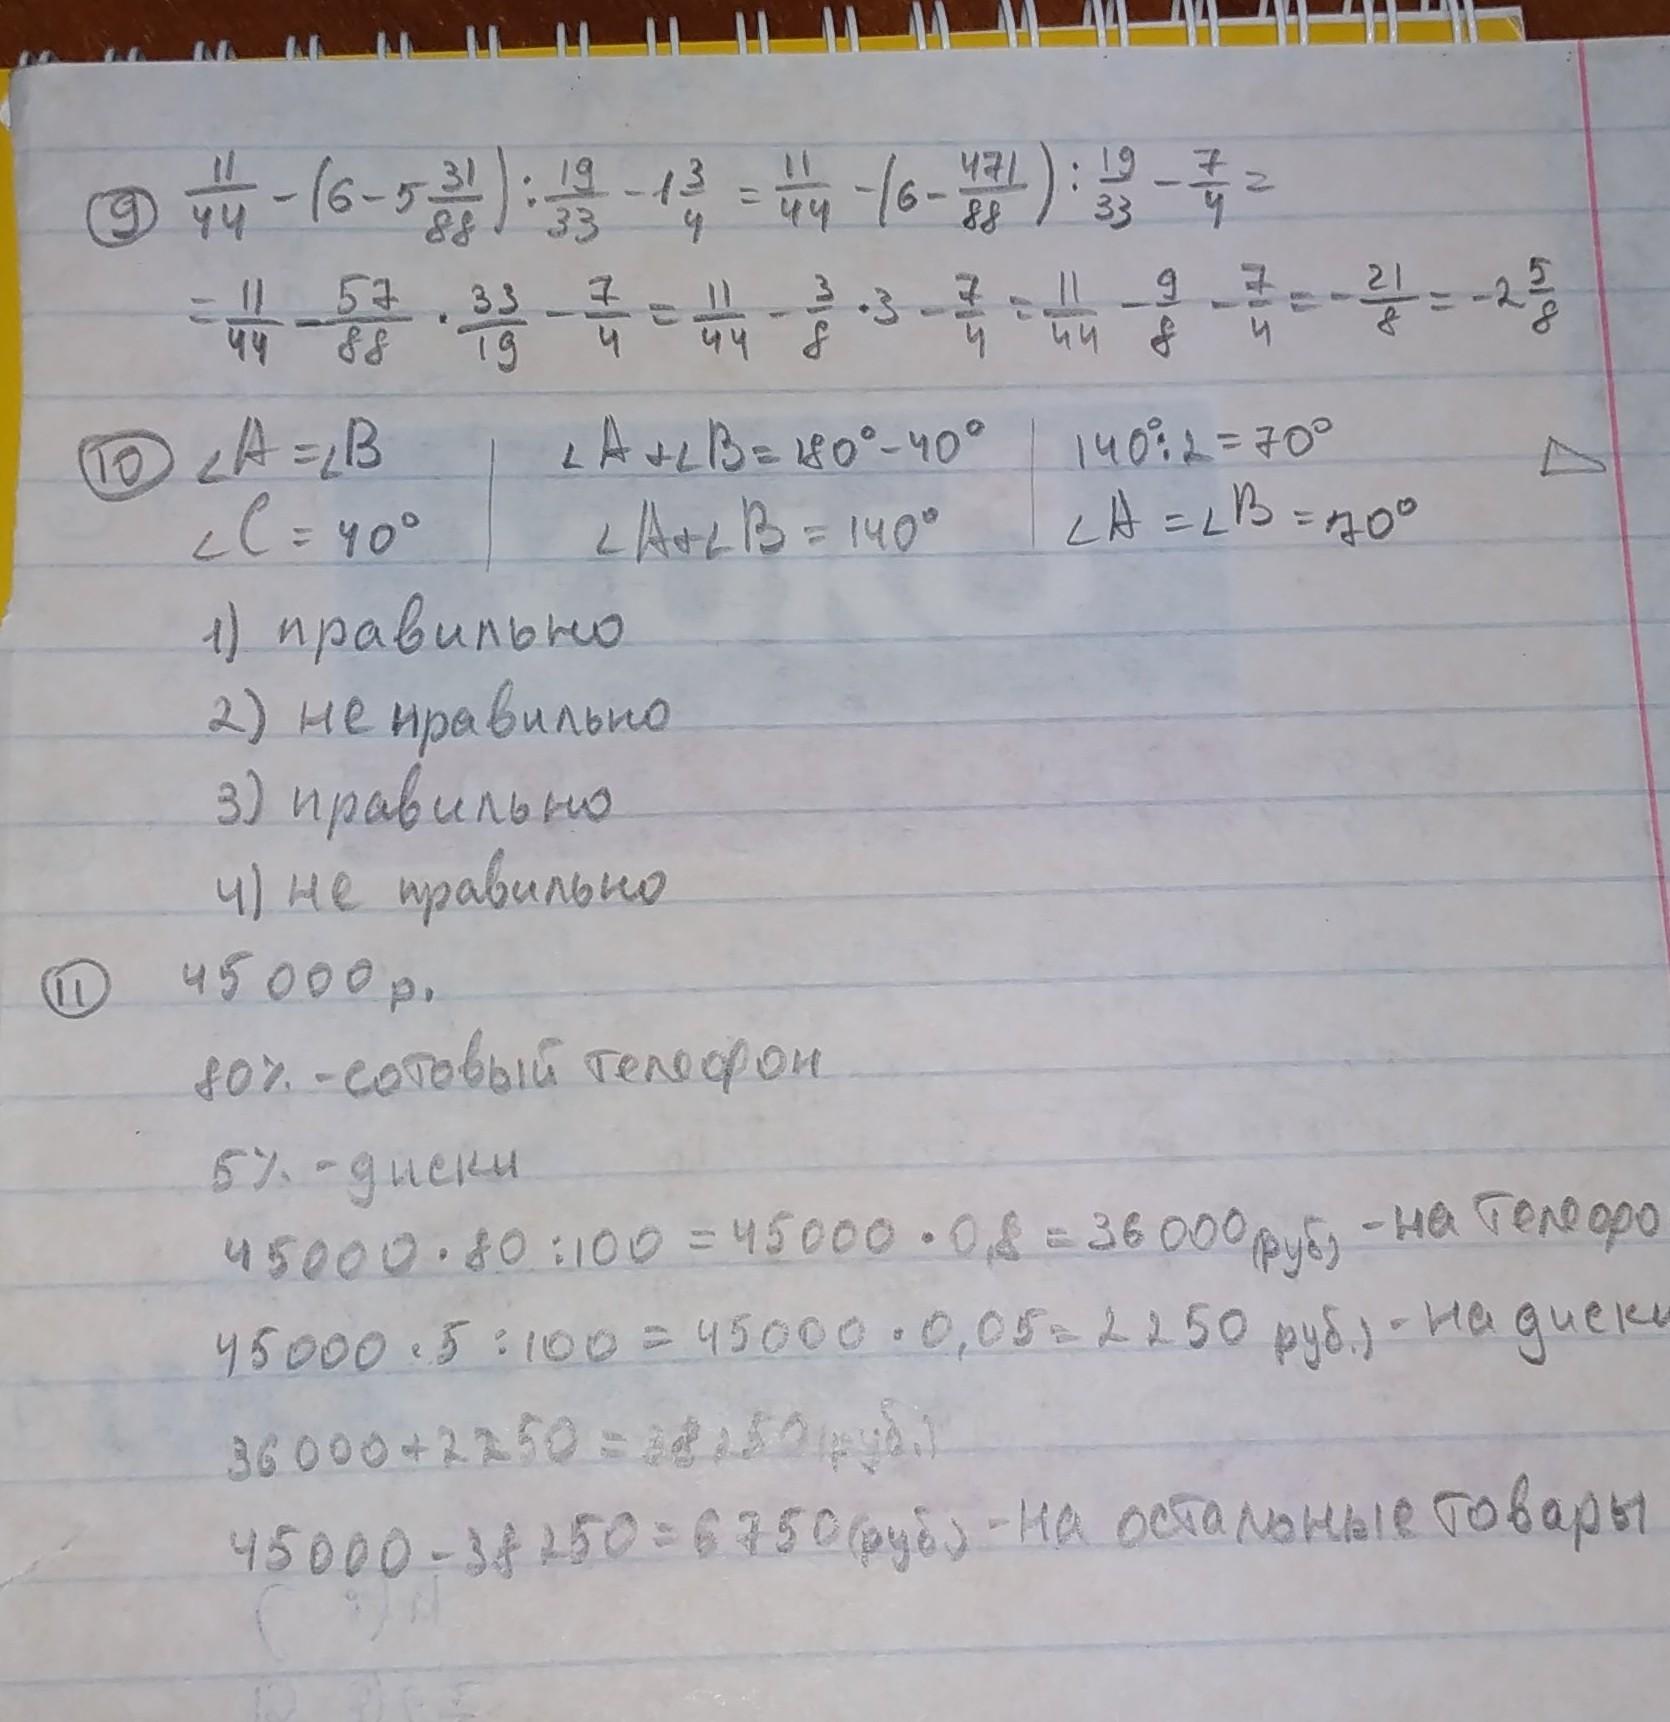 9 11/44 - (6 - 5 31/88) : 19/33 - 1 3/4 = 11/44 - (6 - 471/88) : 19/33 - 7/4 =
= 11/44 - 57/88 · 33/19 - 7/4 = 11/44 - 3/8 · 3 - 7/4 = 11/44 - 9/8 - 7/4 = - 21/8 = -2 5/8
10 ∠A = ∠B | ∠A + ∠B = 180° - 40° | 140° : 2 = 70°
∠C = 40° | ∠A + ∠B = 140° | ∠A = ∠B = 70°
1) правильно
2) не правильно
3) правильно
4) не правильно
11 45 000 р.
80% - сотовый телефон
5% - диски
45000 · 80 : 100 = 45000 · 0,8 = 36 000 (руб) - на телефо
45000 · 5 : 100 = 45000 · 0,05 = 2250 руб.) - на диски
36000 + 2250 = 38250 (руб.)
45000 - 38250 = 6750 (руб.) - на остальные товары